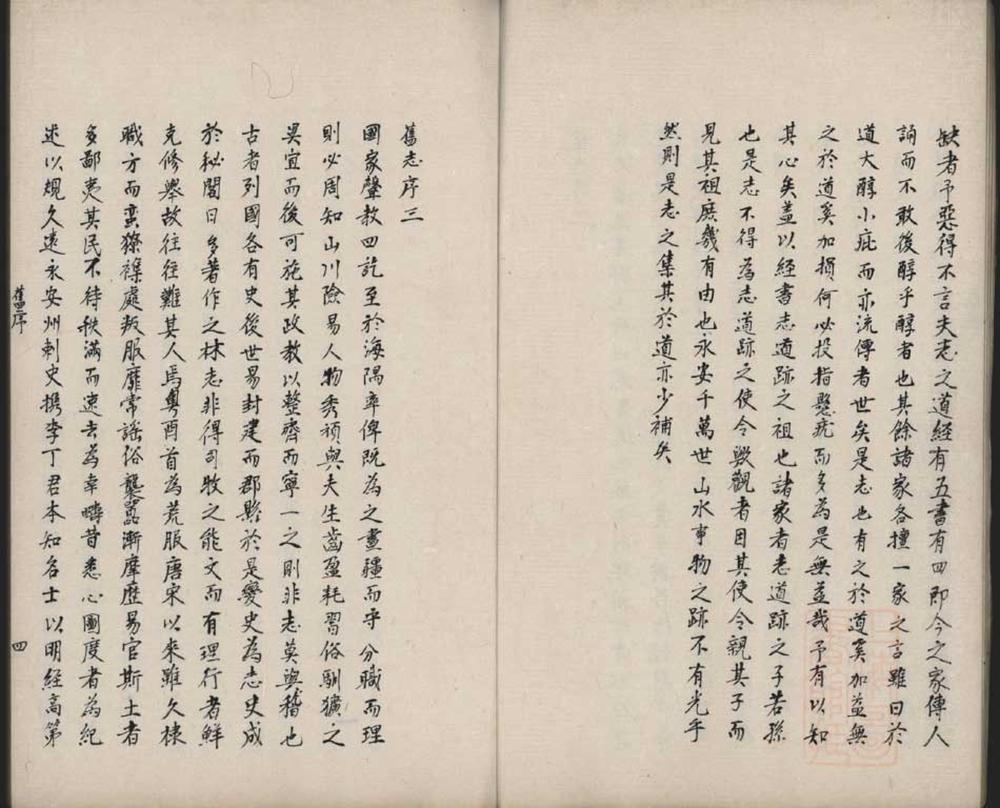 缺者予惡得不言夫志之道經有五書有四即今之家傳人
誦而不敢後醇乎醇者也其餘諸家各擅一家之言雖曰於
道大醇小疵而亦流傳者世矣是志也有之於道奚加益無
之於道奚加損何必投指懸疣而多為是無益哉予有以知
其心矣蓋以經書志道跡之祖也諸家者志道跡之子若孫
也是志不得為志道跡之使令歟觀者因其使令親其子而
見其祖庶幾有由也永安千萬世山水事物之跡不有光乎
然則是志之集其於道亦少補矣
舊志序三
國家聲教四訖至於海隅率俾既為之畫疆而守分職而理
則必周知山川險易人物秀頑與夫生齒盈耗習俗馴獷之
異宜而後可施其政教以整齊而寧一之則非志莫與稽也
古者列國各有史後世易封建而郡縣於是變史為志史成
於秘閣日多著作之林志非得司牧之能文而有理行者鮮
克修舉故往往難其人焉粵酉首為荒服唐宋以來雖久隸
職方而蠻獠襍處叛服靡常謠俗襲囂漸摩歷易官斯土者
多鄙夷其民不待秩滿而速去為幸疇昔悉心圖度者為紀
述以規久遠永安州刺史攜李丁君本知名士以明經高第
舊序
四